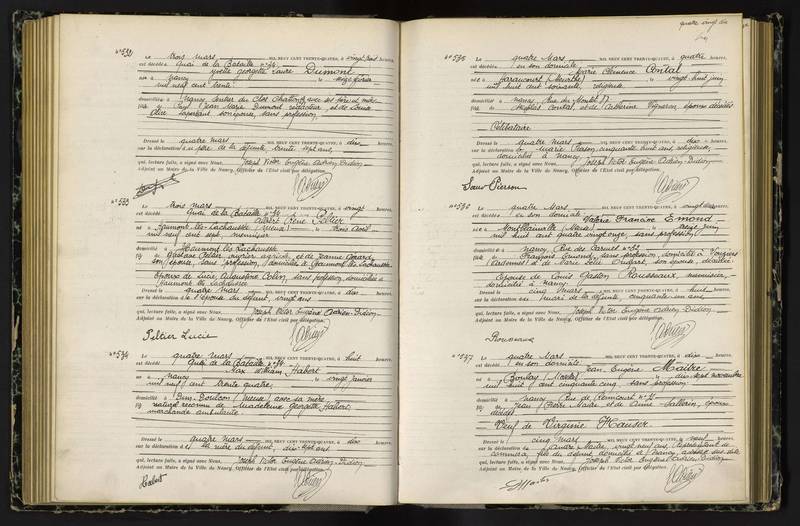 N° 532
Le trois mars MIL NEUF CENT TRENTE-QUATRE, à vingt heures
est décédée Quai de la Bataille N° 34
Yvette Georgette Laure Dumont
née à Nancy le seize février
mil neuf cent trente
domiciliée à Nancy, sentier du Clos Chatton, avec ses père et mère
fille de Jean Marie Dumont, rédacteur, et de
son épouse, sans profession
Dressé le quatre mars MIL NEUF CENT TRENTE-QUATRE, à dix heures
sur la déclaration du père de la défunte, trente sept ans,
qui, lecture faite, a signé avec Nous, Joseph Victor Eugène Adrien Didion
Adjoint au Maire de la Ville de Nancy, Officier de l'Etat civil par délégation.
N° 533
Le trois mars MIL NEUF CENT TRENTE-QUATRE, à vingt heures
est décédé Quai de la Bataille N° 34
Albert René Peltier
né à Gaumont-lès-Lachaussée (Meuse) le trois avril
mil neuf cent sept, menuisier
domicilié à Haumont lès Lachaussée
fils de Gustave Peltier, ouvrier agricole, et de Jeanne
son épouse, sans profession, domiciliés à Haumont lès Lachaussée
époux de Lucie Augustine Colin, sans profession, domiciliée à
Haumont lès Lachaussée
Dressé le quatre mars MIL NEUF CENT TRENTE-QUATRE, à dix heures
sur la déclaration de l'épouse du défunt, vingt ans
qui, lecture faite, a signé avec Nous, Joseph Victor Eugène Adrien Didion
Adjoint au Maire de la Ville de Nancy, Officier de l'Etat civil par délégation.
Peltier Lucie
N° 534
Le quatre mars MIL NEUF CENT TRENTE-QUATRE, à huit heures
est décédé Quai de la Bataille N° 34
Max William Habert
né à Nancy le vingt janvier
mil neuf cent trente quatre
domicilié à (Meuse) avec sa mère
fils naturel reconnu de Madeleine Georgette Habert
marchande ambulante
Dressé le quatre mars MIL NEUF CENT TRENTE-QUATRE, à dix heures
sur la déclaration de la mère du défunt, dix-sept ans
qui, lecture faite, a signé avec Nous, Joseph Victor Eugène Adrien Didion
Adjoint au Maire de la Ville de Nancy, Officier de l'Etat civil par délégation.
Habert
quatre vingt dix
N° 535
Le quatre mars MIL NEUF CENT TRENTE-QUATRE, à quatre heures
est décédée en son domicile
Marie Clémence Contal
née à Haraucourt (Meurthe) le vingt huit juin
mil huit cent soixante, religieuse
domiciliée à Nancy, Rue du Montet 17
fille de Nicolas Contal et de Catherine, époux décédés
Célibataire
Dressé le quatre mars MIL NEUF CENT TRENTE-QUATRE, à dix heures
sur la déclaration de Marie Pierson, cinquante huit ans, religieuse,
domiciliée à Nancy
qui, lecture faite, a signé avec Nous, Joseph Victor Eugène Adrien Didion
Adjoint au Maire de la Ville de Nancy, Officier de l'Etat civil par délégation.
Sœur Pierson
N° 536
Le quatre mars MIL NEUF CENT TRENTE-QUATRE, à vingt heures
est décédée en son domicile
Valérie Francine Emond
née à Montblainville (Meuse) le treize juin
mil huit cent quatre vingt onze, sans profession
domiciliée à Nancy, Rue des Carmes
fille de François Emond, sans profession, domicilié à Vouziers
(Ardennes) et de Marie son épouse décédée
Epouse de Louis Gaston Rousseaux, menuisier,
domicilié à Nancy
Dressé le cinq mars MIL NEUF CENT TRENTE-QUATRE, à huit heures
sur la déclaration du mari de la défunte, cinquante un ans
qui, lecture faite, a signé avec Nous, Joseph Victor Eugène Adrien Didion
Adjoint au Maire de la Ville de Nancy, Officier de l'Etat civil par délégation.
Rousseaux
N° 537
Le quatre mars MIL NEUF CENT TRENTE-QUATRE, à dix heures
est décédé en son domicile
Jean Eugène Maitre
né à Boulay (Moselle) le dix sept novembre
mil huit cent cinquante cinq, sans profession
domicilié à Nancy, Rue de
fils de Jean Pierre Maitre et de Anne, époux
décédés
Veuf de Virginie Hauser
Dressé le cinq mars MIL NEUF CENT TRENTE-QUATRE, à neuf heures
sur la déclaration de Maitre, vingt neuf ans, représentant de
commerce, fils du défunt, domicilié à Nancy
qui, lecture faite, a signé avec Nous, Joseph Victor Eugène Adrien Didion
Adjoint au Maire de la Ville de Nancy, Officier de l'Etat civil par délégation.